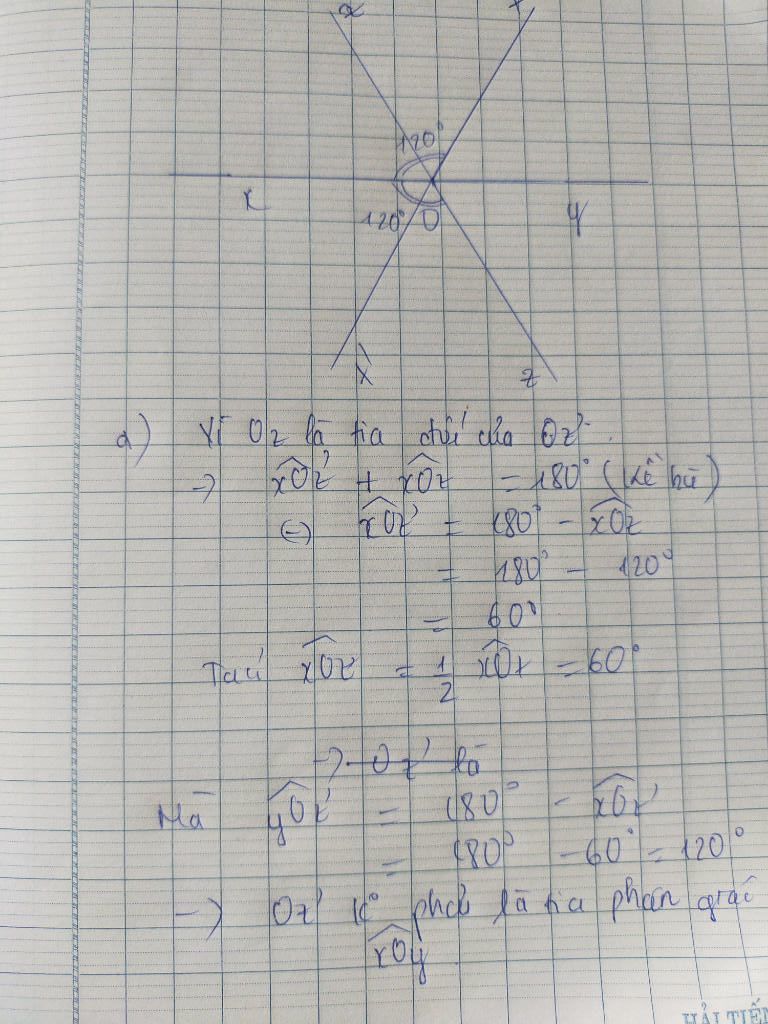 120°
x
y
120° O
z
a) Vì Oz là tia đối của Oz'.
→ xOz' + xOz = 180° (kề bù)
(=) xOz' = 180° - xOz
= 180° - 120°
= 60°
Ta có xOz' = 1/2 xOt = 60°
→ Oz' là
Mà yOz' = 180° - xOz'
= 180° - 60° = 120°
→ Oz' k° phải là tia phân giác
xOy
HẢI TIẾN